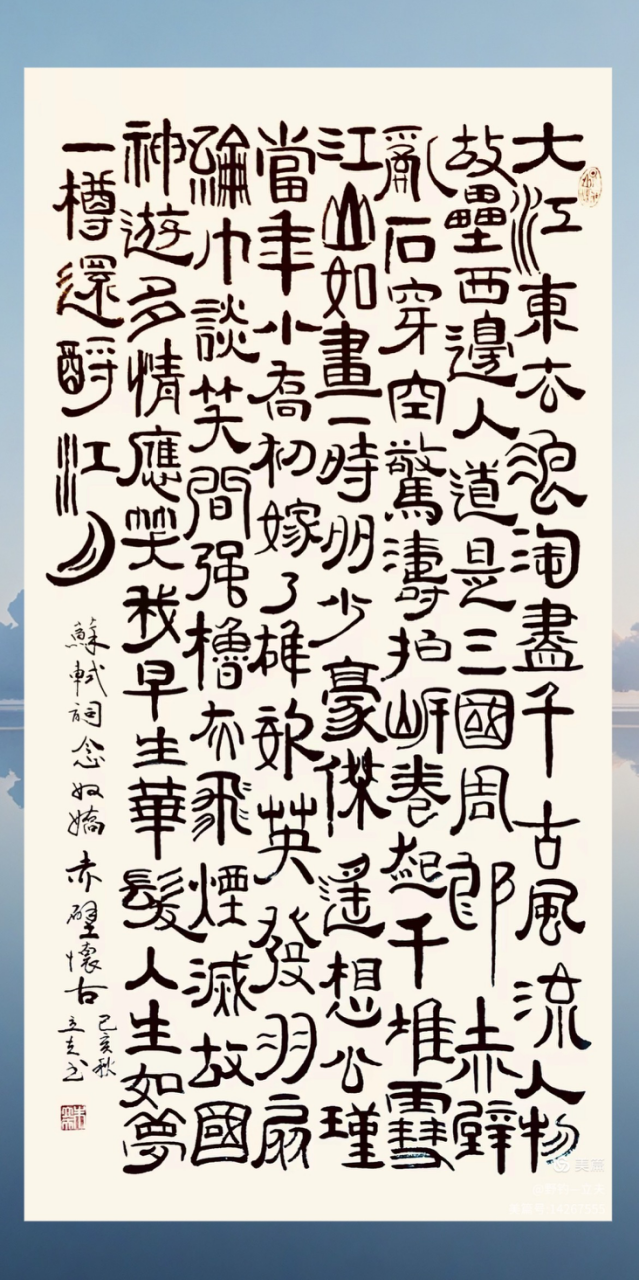 大江東去浪淘盡千古風流人物
故壘西邊人道是三國周郎赤壁
亂石穿空驚濤拍岸卷起千堆雪
江山如畫一時多少豪傑遙想公瑾
當年小喬初嫁了雄姿英發羽扇
綸巾談笑間强櫓灰飛煙滅故國
神遊多情應笑我早生華髮人生如夢
一樽還酹江月
蘇軾詞念奴嬌赤壁懷古
己亥秋
美篇